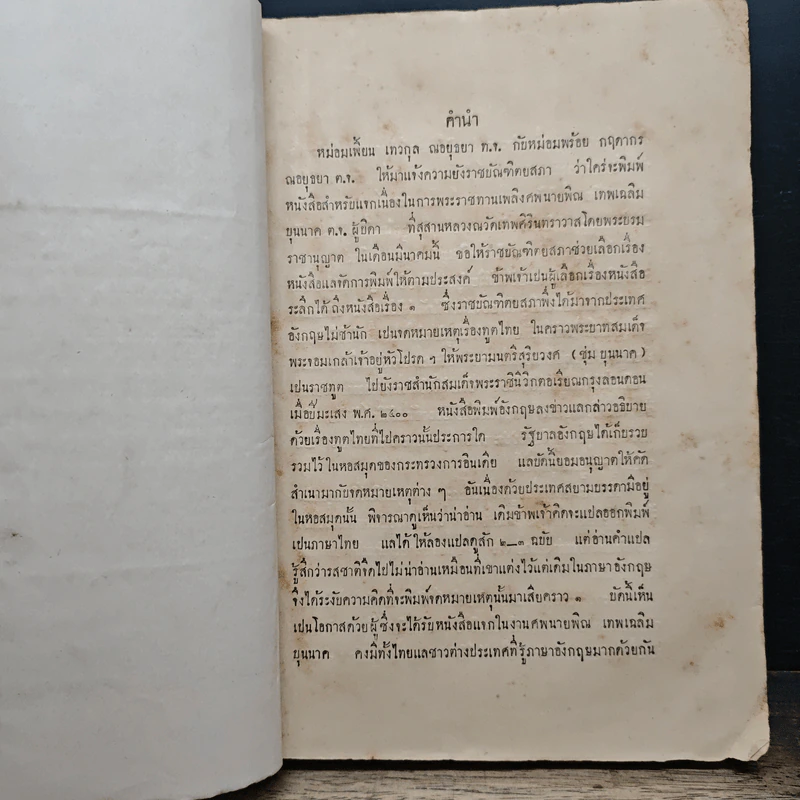 คำนำ
หม่อมเพี้ยน เทวกุล ณอยุธยา ต.จ. กับหม่อมพร้อย กฤดากร
ณอยุธยา ต.จ. ให้มาแจ้งความยังราชบัณฑิตยสภา ว่าใคร่จะพิมพ์
หนังสือสำหรับแจกเนื่องในการพระราชทานเพลิงศพนายพิณ เทพเฉลิม
บุนนาค ต.จ. ผู้บิดา ที่สุสานหลวงณวัดเทพศิรินทราวาสโดยพระบรม
ราชานุญาต ในเดือนมีนาคมนี้ ขอให้ราชบัณฑิตยสภาช่วยเลือกเรื่อง
หนังสือแลจัดการพิมพ์ให้ตามประสงค์ ข้าพเจ้าเป็นผู้เลือกเรื่องหนังสือ
ระลึกได้ถึงหนังสือเรื่อง ๑ ซึ่งราชบัณฑิตยสภาพึ่งได้มาจากประเทศ
อังกฤษไม่ช้านัก เป็นจดหมายเหตุเรื่องทูตไทย ในคราวพระบาทสมเด็จ
พระจอมเกล้าเจ้าอยู่หัวโปรด ฯ ให้พระยามนตรีสุริยวงศ์ (ชุ่ม บุนนาค)
เป็นราชทูต ไปยังราชสำนักสมเด็จพระราชินีวิกตอเรียณกรุงลอนดอน
เมื่อปีมะเสง พ.ศ. ๒๔๐๐ หนังสือพิมพ์อังกฤษลงข่าวแลกล่าวอธิบาย
ด้วยเรื่องทูตไทยที่ไปคราวนั้นประการใด รัฐบาลอังกฤษได้เก็บรวบ
รวมไว้ในหอสมุดของกระทรวงการอินเดีย แลบัดนี้ยอมอนุญาตให้คัด
สำเนามากับจดหมายเหตุต่าง ๆ อันเนื่องด้วยประเทศสยามบรรดามีอยู่
ในหอสมุดนั้น พิจารณาดูเห็นว่าน่าอ่าน เดิมข้าพเจ้าคิดจะแปลออกพิมพ์
เป็นภาษาไทย แลได้ให้ลองแปลดูสัก ๒—๓ ฉบับ แต่อ่านคำแปล
รู้สึกว่ารสชาติจืดไปไม่น่าอ่านเหมือนที่เขาแต่งไว้แต่เดิมในภาษาอังกฤษ
จึงได้ระงับความคิดที่จะพิมพ์จดหมายเหตุนั้นมาเสียคราว ๑ บัดนี้เห็น
เป็นโอกาสด้วยผู้ซึ่งจะได้รับหนังสือแจกในงานศพนายพิณ เทพเฉลิม
บุนนาค คงมีทั้งไทยแลชาวต่างประเทศที่รู้ภาษาอังกฤษมากด้วยกัน